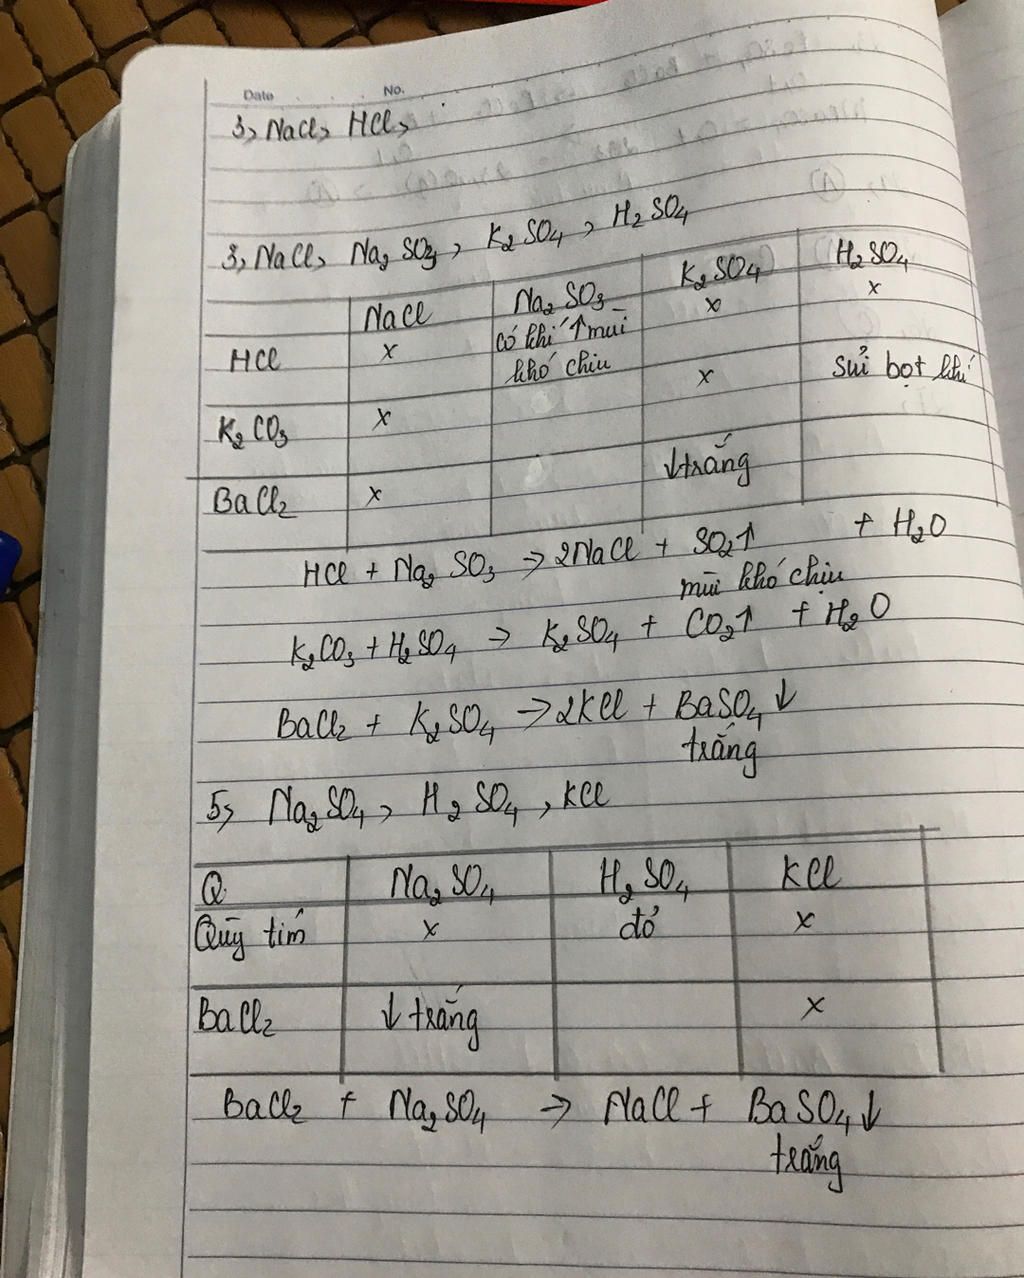 Date No.
3, NaCl, HCl,
3, NaCl, Na2SO3, K2SO4, H2SO4
NaCl Na2SO3 K2SO4 H2SO4
HCl x có khí ↑ mùi khó chịu x x
K2CO3 x x sủi bọt khí
BaCl2 x ↓ trắng
HCl + Na2SO3 → 2NaCl + SO2↑ + H2O
mùi khó chịu
K2CO3 + H2SO4 → K2SO4 + CO2↑ + H2O
BaCl2 + K2SO4 → 2KCl + BaSO4↓
trắng
5, Na2SO4, H2SO4, KCl
Q Na2SO4 H2SO4 KCl
Qùy tím x đỏ x
BaCl2 ↓ trắng x
BaCl2 + Na2SO4 → NaCl + BaSO4↓
trắng